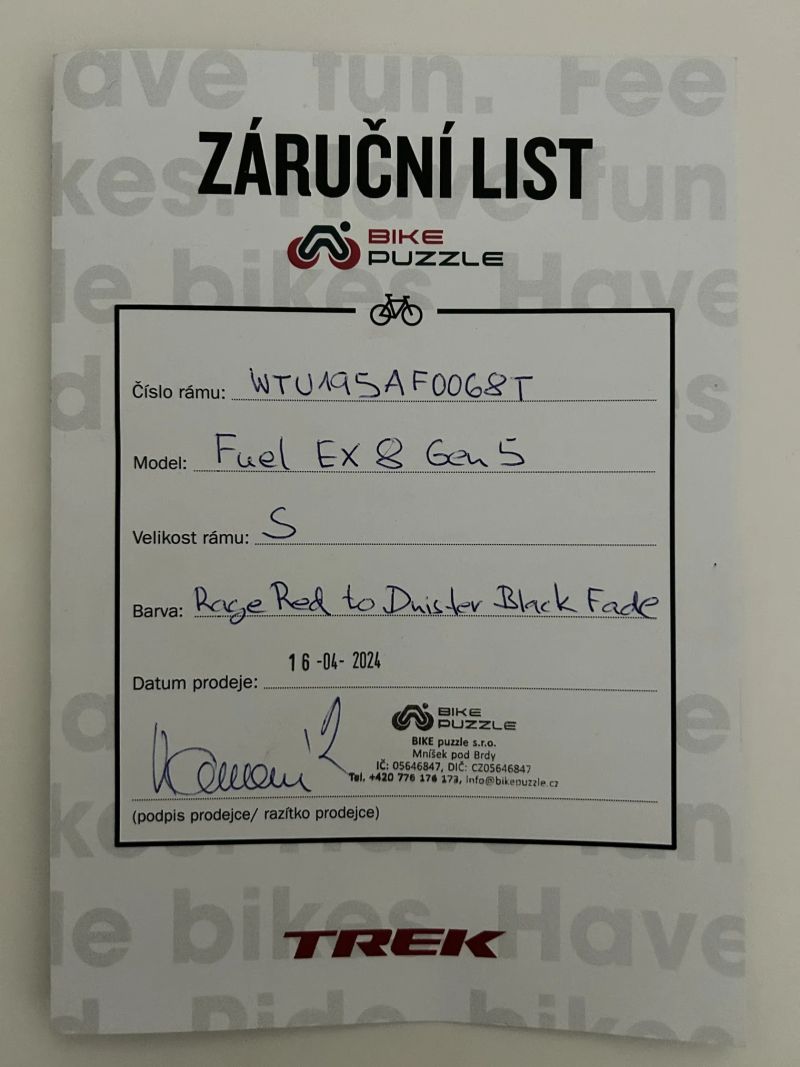 ave fun. Fee
kes. Have fun
ZÁRUČNÍ LIST
BIKE
PUZZLE
de bikes. Have
Číslo rámu: WTU195AF0068T
Model: Fuel EX 8 Gen 5
Velikost rámu: S
Barva: Rage Red to Dnister Black Fade
Datum prodeje: 16-04-2024
BIKE
PUZZLE
BIKE puzzle s.r.o.
Mníšek pod Brdy
IČ: 05646847, DIČ: CZ05646847
Tel. +420 776 176 173, info@bikepuzzle.cz
(podpis prodejce/ razítko prodejce)
de bikes. Have
TREK
d. Ride bikes